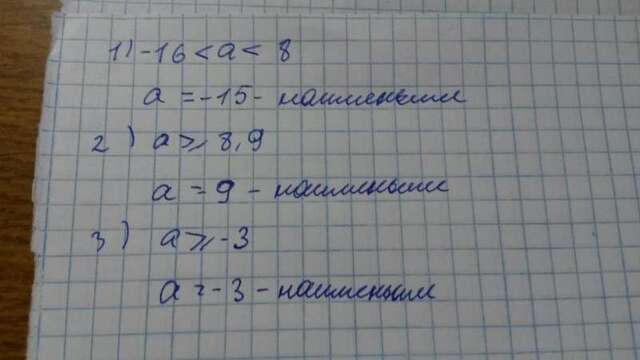 1) -16 < a < 8
a = -15 - наименьшии
2) a ⩾ 8,9
a = 9 - наименьшии
3) a ⩾ -3
a = -3 - наименьшии